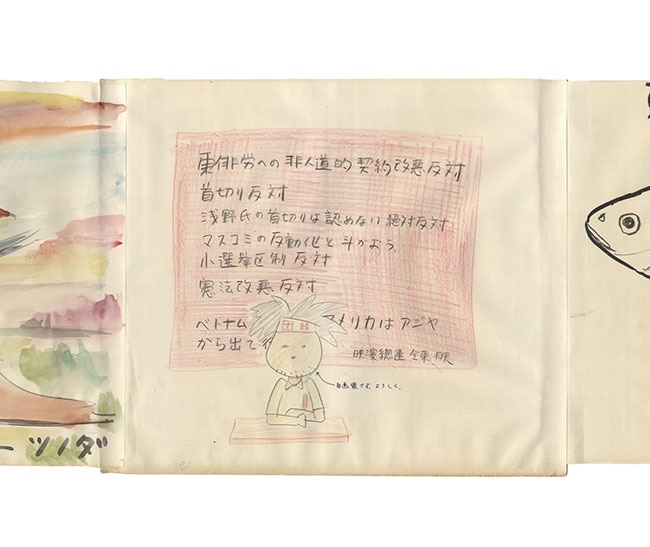 東俳労への非人道的契約改悪反対
首切り反対
浅野氏の首切りは認めない絶対反対
マスコミの反動化と斗かおう
小選挙区制反対
憲法改悪反対
ベトナム アメリカはアジヤ
から出て
映演総連 全東映
自画像です。よろしく。
ーツノダ